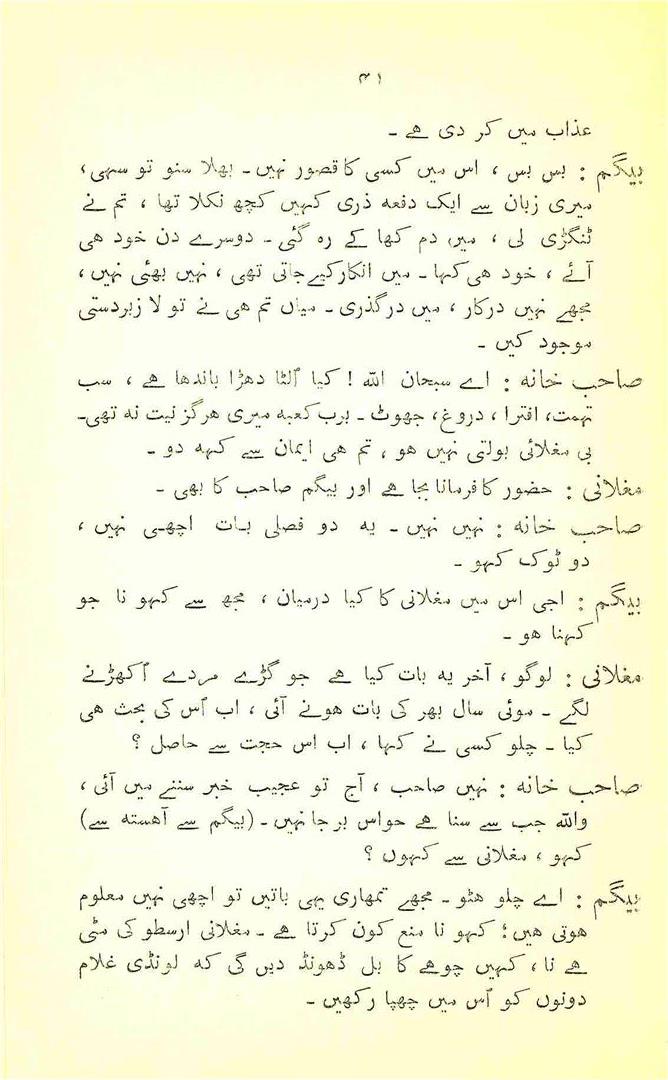 ۳۱
عذاب میں کر دی ہے ۔
بیگم : بس بس ، اس میں کسی کا قصور نہیں ۔ بھلا سنو تو سہی ،
میری زبان سے ایک دفعہ ذری کہیں کچھ نکلا تھا ، تم نے
ٹنگڑی لی ، میں دم کھا کے رہ گئی ۔ دوسرے دن خود ہی
آئے ، خود ہی کہا ۔ میں انکار کیے جاتی تھی ، نہیں بھئی نہیں ،
مجھے نہیں درکار ، میں درگذری ۔ میاں تم ہی نے تو لا زبردستی
موجود کیں ۔
صاحب خانہ : اے سبحان اللہ ! کیا اُلٹا دھڑا باندھا ہے ، سب
تہمت ، افترا ، دروغ ، جھوٹ ۔ برب کعبہ میری ہرگز نیت نہ تھی ۔
بی مغلانی بولتی نہیں ہو ، تم ہی ایمان سے کہہ دو ۔
مغلانی : حضور کا فرمانا بجا ہے اور بیگم صاحب کا بھی ۔
صاحب خانہ : نہیں نہیں ۔ یہ دو فصلی بات اچھی نہیں ،
دو ٹوک کہو ۔
بیگم : اجی اس میں مغلانی کا کیا درمیان ، مجھ سے کہو نا جو
کہنا ہو ۔
مغلانی : لوگو ، آخر یہ بات کیا ہے جو گڑے مردے اکھڑنے
لگے ۔ موئی سال بھر کی بات ہونے آئی ، اب اُس کی بحث ہی
کیا ۔ چلو کسی نے کہا ، اب اس حجت سے حاصل ؟
صاحب خانہ : نہیں صاحب ، آج تو عجیب خبر سننے میں آئی ،
واللہ جب سے سنا ہے حواس برجا نہیں ۔ (بیگم سے آہستہ سے)
کہو ، مغلانی سے کہوں ؟
بیگم : اے چلو ہٹو ۔ مجھے تمھاری یہی باتیں تو اچھی نہیں معلوم
ہوتی ہیں ؛ کہو نا منع کون کرتا ہے ۔ مغلانی ارسطو کی مٹی
ہے نا ، کہیں چوہے کا بل ڈھونڈ دیں گی کہ لونڈی غلام
دونوں کو اُس میں چھپا رکھیں ۔